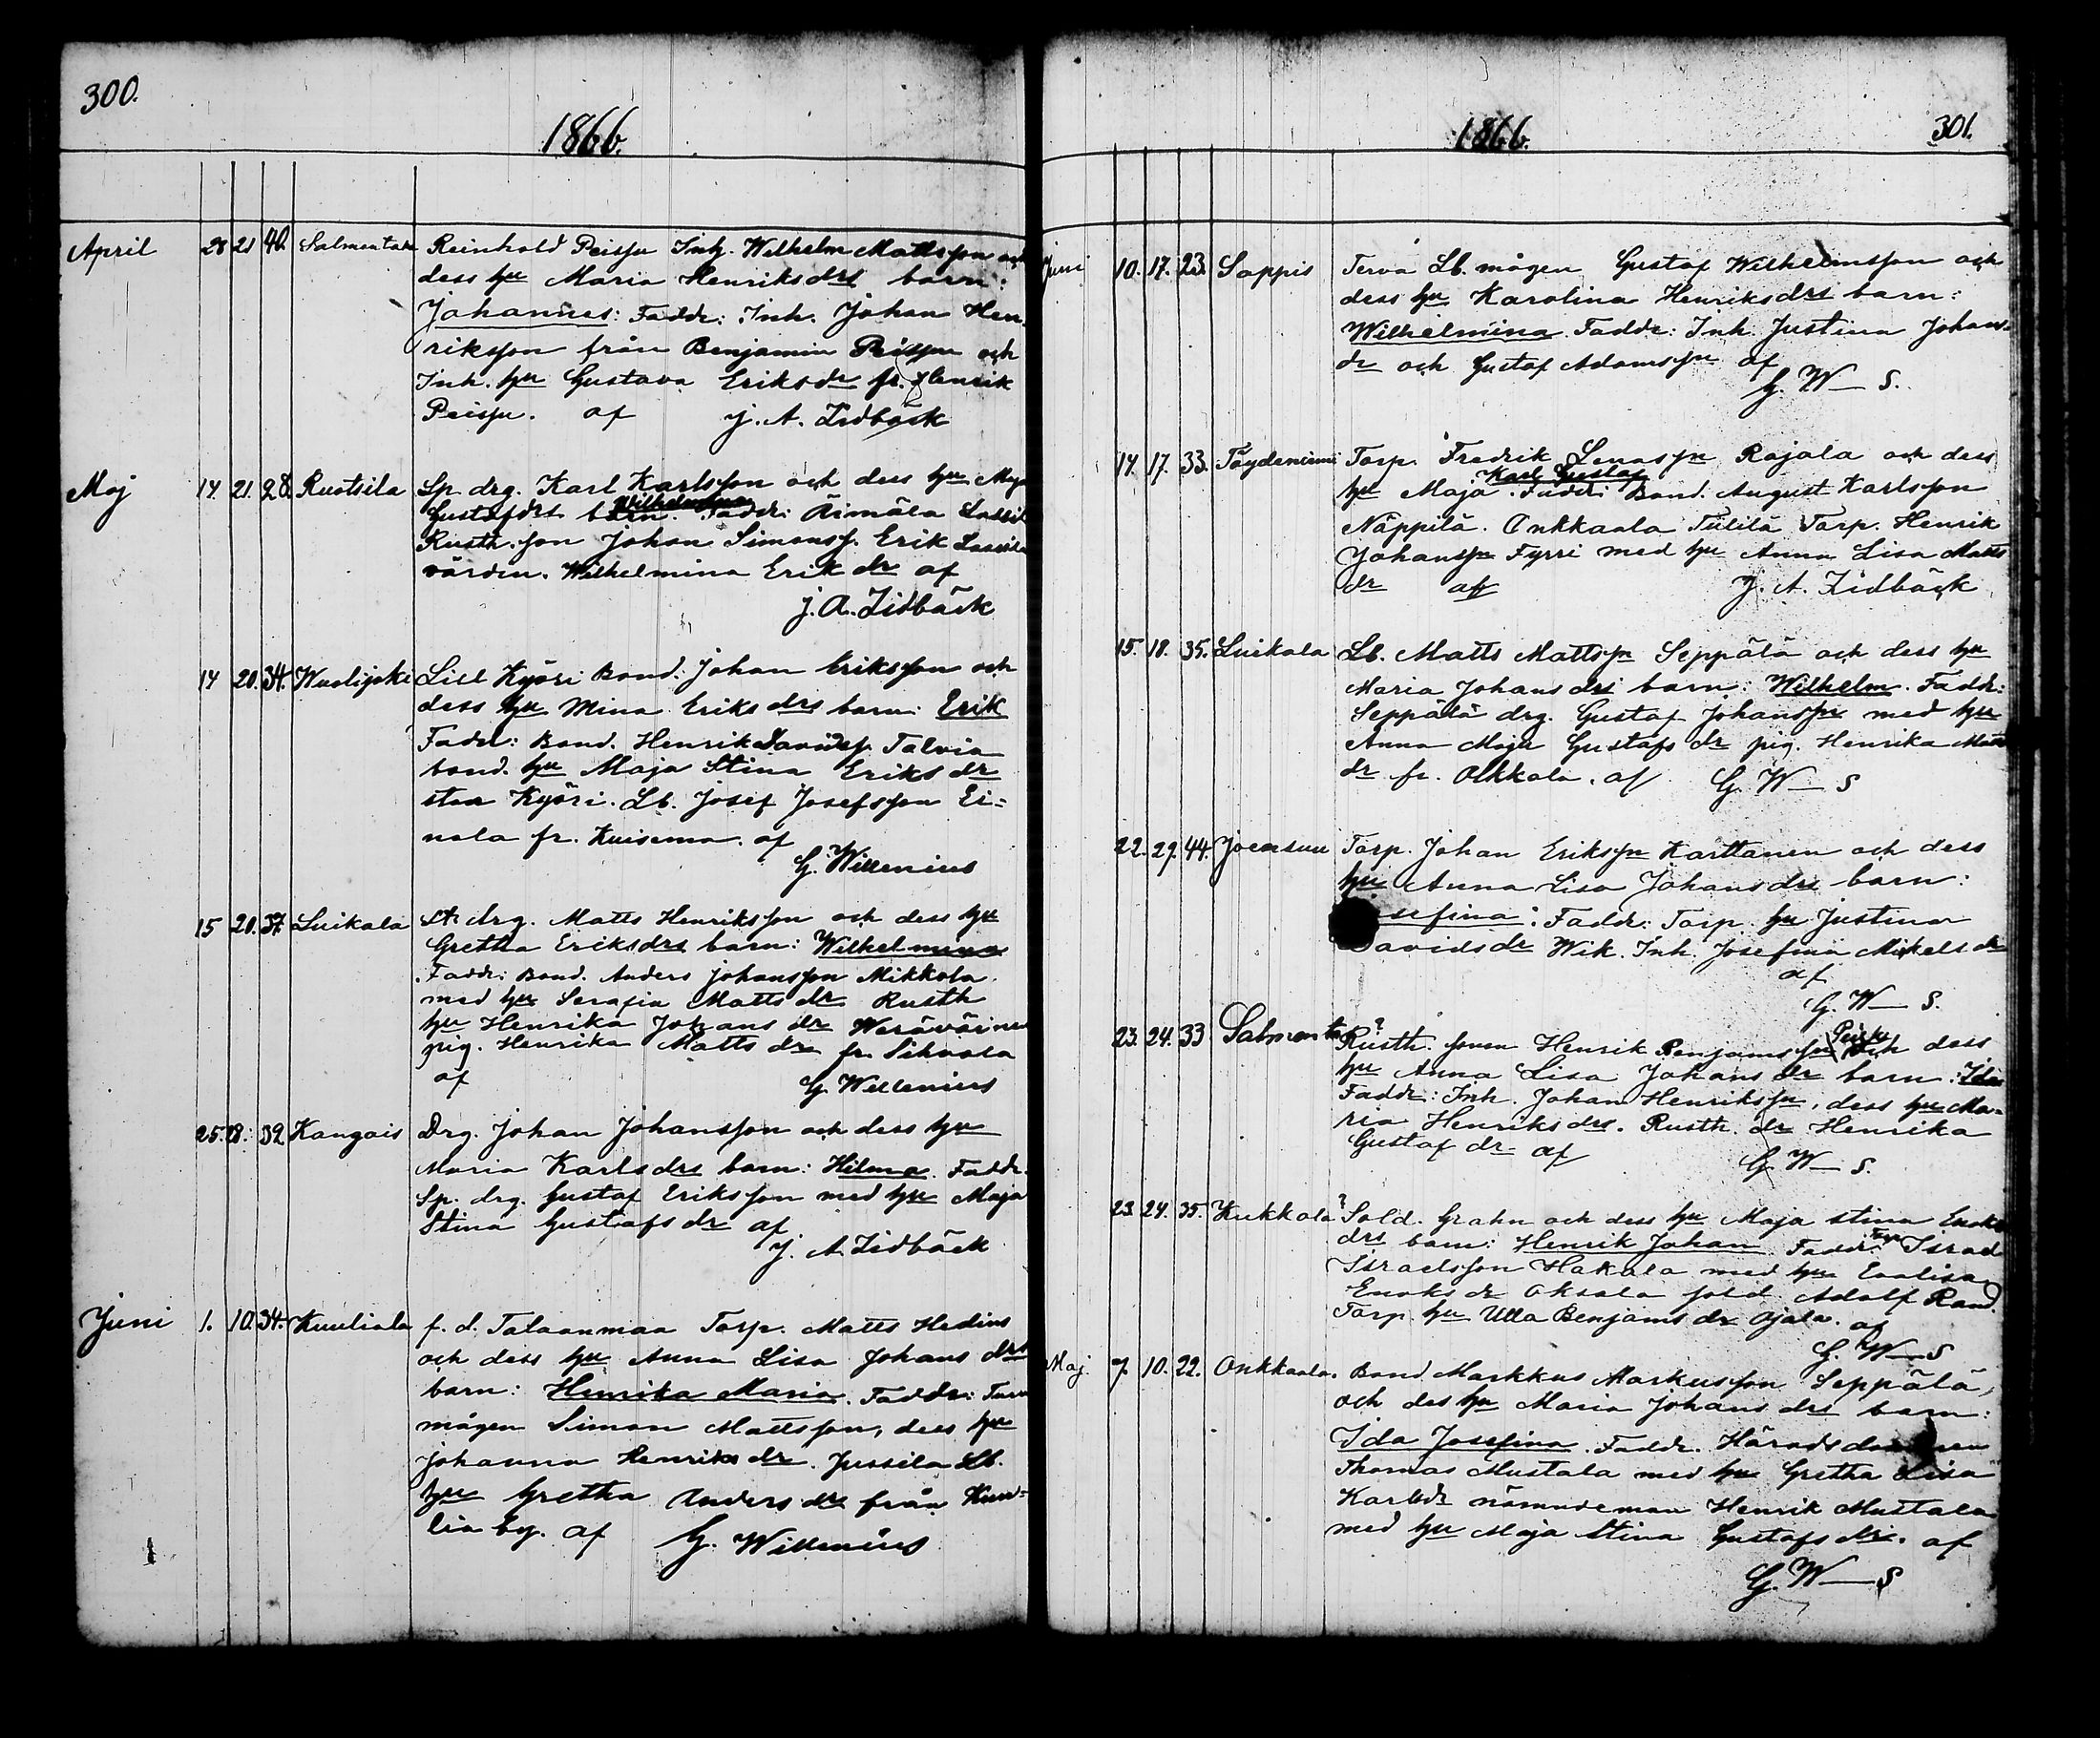 300.
1866.
April 28 21 40. Salmentaka Reinhold Peisju Inh. Wilhelm Mattsson och
dess hu Maria Henriksdrs barn:
Johannes: Faddr: Inh. Johan Hen-
riksson från Benjamin Peisju och
Inh. hu Gustava Eriksdr fr. Henrik
Peisju. af J. A. Lidbäck
Maj 14 21. 28. Rustsila Sp. drg. Karl Karlsson och dess hu Maja
Wilhelmina
Gustafdrs barn. Faddr: Äimälä Lassil
Rusth. son Johan Simonss. Erik Lassila
värden. Wilhelmina Erik dr af
J. A. Lidbäck
14 20. 34. Wuolijoki Lill Kyöri Bond. Johan Eriksson och
dess hu Mina Eriks drs barn: Erik
Fadd: Bond. Henrik Davidss. Talvia
bond. hu Maja Stina Eriks dr
stor Kyöri. Lb. Josef Josefsson Ei=
nola fr. Kuisema. af
G. Willenius
15 20. 37. Luikala St. drg. Matts Henriksson och dess hu
Gretha Eriksdrs barn: Wilhelmina
Faddr: Bond. Anders Johansson Mikkola
med hu Serafia Matts dr Rusth
hu Henrika Johans dr
pig. Henrika Matts dr fr. Sihvola
af G. Willenius
25. 28. 32 Kangais Drg. Johan Johansson och dess hu
Maria Karlsdrs barn: Hilma. Faddr.
Sp. drg. Gustaf Eriksson med hu Maja
Stina Gustafs dr af
J. A. Lidbäck
Juni 1. 10. 34. Kuuliala f. d. Talaanmaa Torp. Matts Hedius
och dess hu Anna Lisa Johans drs
barn: Henrika Maria. Faddr:
mågen Simon Mattsson, dess hu
Johanna Henriks dr. Jussila Lb.
hu Gretha Anders dr från Kuu=
lia by. af G. Willenius
1866. 301.
Juni 10. 17. 23. Sappis Terva Lb. mågen Gustaf Wilhelmsson och
dess hu Karolina Henriksdrs barn:
Wilhelmina. Faddr: Inh. Justina Johans-
dr och Gustaf Adamsson af
G. W— S.
14. 17. 33. Töydenummi Torp. Fredrik Lenasson Rajala och dess
Karl Gustaf
hu Maja. Faddr: Bond. August Karlsson
Näppilä. Onkkaala Tülilä Torp. Henrik
Johansson Fyrri med hu Anna Lisa Matts
dr af J. A. Lidbäck
15. 18. 35. Luikala Lb. Matts Mattsson Seppälä och dess hu
Maria Johans drs barn: Wilhelm. Faddr:
Seppälä drg. Gustaf Johansson med hu
Anna Maja Gustafs dr pig. Henrika Matts
dr fr. Olkkala. af G. W— S
22. 29. 44. Joensuu Torp. Johan Eriksson Karttanen och dess
hu Anna Lisa Johansdrs barn:
sefina: Faddr: Torp. hu Justina
Davids dr Wik. Inh. Josefina Mikels dr
af
G. W— S.
23. 24. 33 Salmenta ? Peisju
Rusth. sonen Henrik Benjamsson och dess
hu Anna Lisa Johans dr barn: Ida
Faddr: Inh. Johan Henriksson, dess hu Ma=
ria Henriks drs. Rusth. dr Henrika
Gustaf dr af G. W— S.
23. 24. 35. Kukkola ? Sold. Grahn och dess hu Maja Stina Enoks
drs barn: Henrik Johan. Faddr. Torp. Israel
Israelsson Hakala med hu Evalisa
Enoks dr Oksala sold. Adolf Rand.
Torp. hu Ulla Benjams dr Ojala. af
G. W— S
Maj. 7. 10. 22. Onkkaala. Bond. Markkus Markusson Seppälä,
och des hu Maria Johans drs barn:
Ida Josefina. Faddr. Härads
Thomas Mustala med hu Gretha Lisa
Karlsdr nämndeman Henrik Mustala
med hu Maja Stina Gustafs dr. af
G. W— S